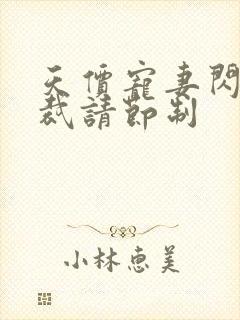 天價寵妻閃
裁請節制
小林惠美